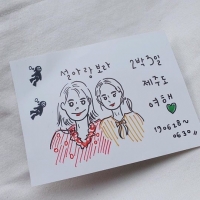 설아랑보라
2박3일
제주도
여행
190628~
0630